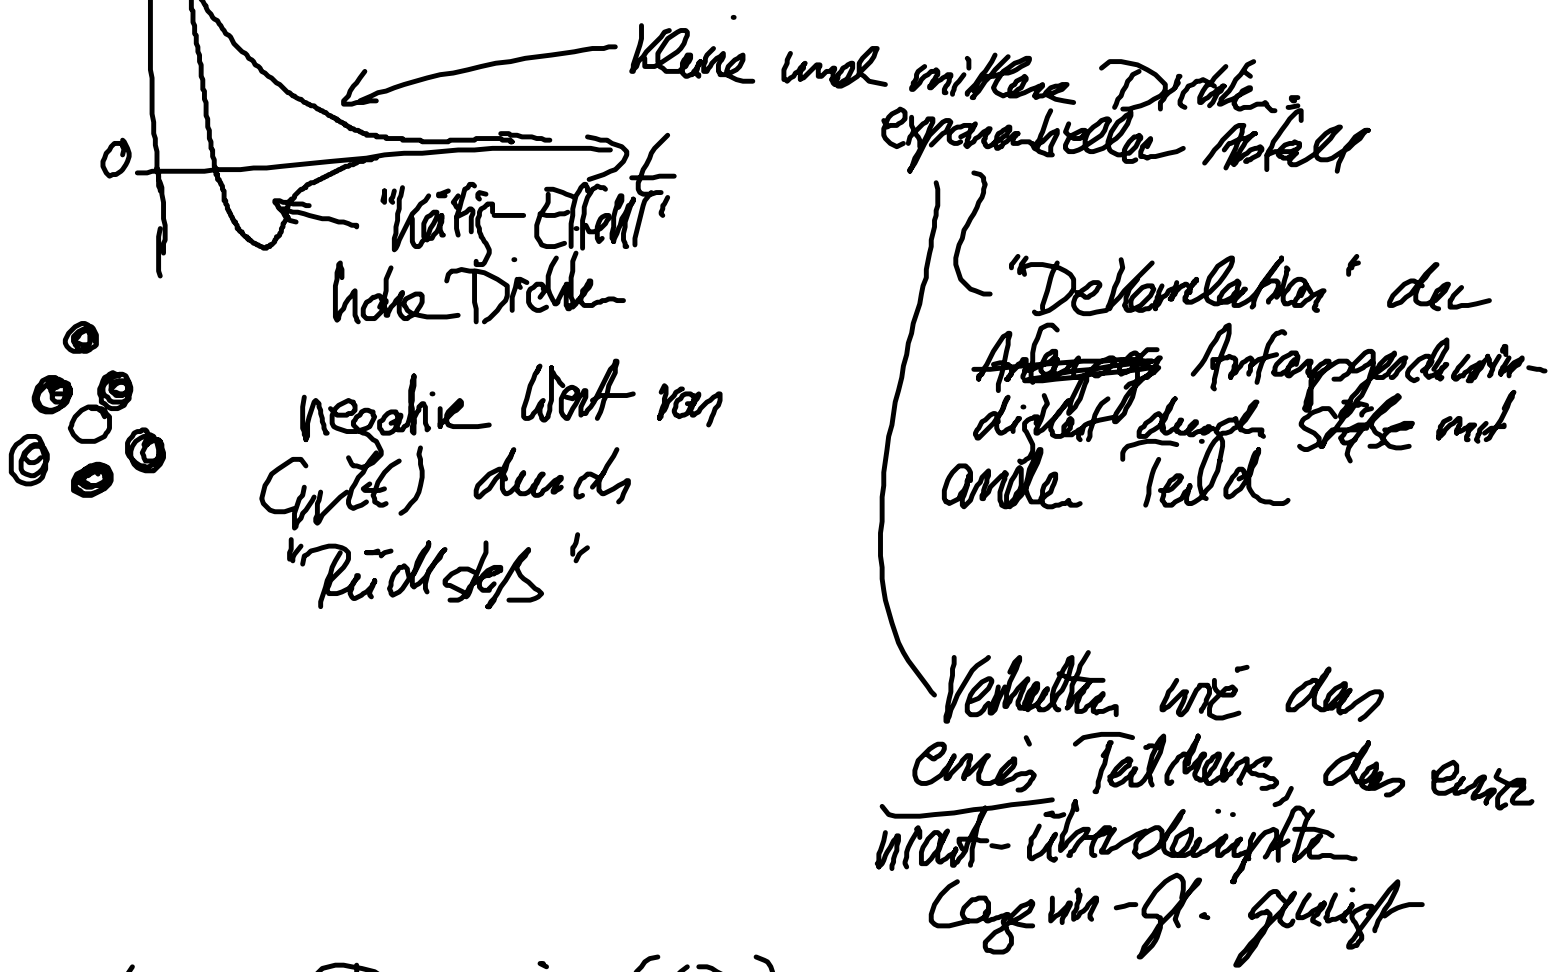 kleine und mittlere Dichten:
exponentieller Abfall
0
t
"Käfig-Effekt"
hohe Dichte
negative Wert von
C_vv(t) durch
"Rückstoß"
"Dekorrelation" der
Anfangsgeschwin-
digkeit durch Stöße mit
anden Teilch
Verhalten wie das
eines Teilchens, das einer
nicht-überdämpften
Langevin-Gl. genügt